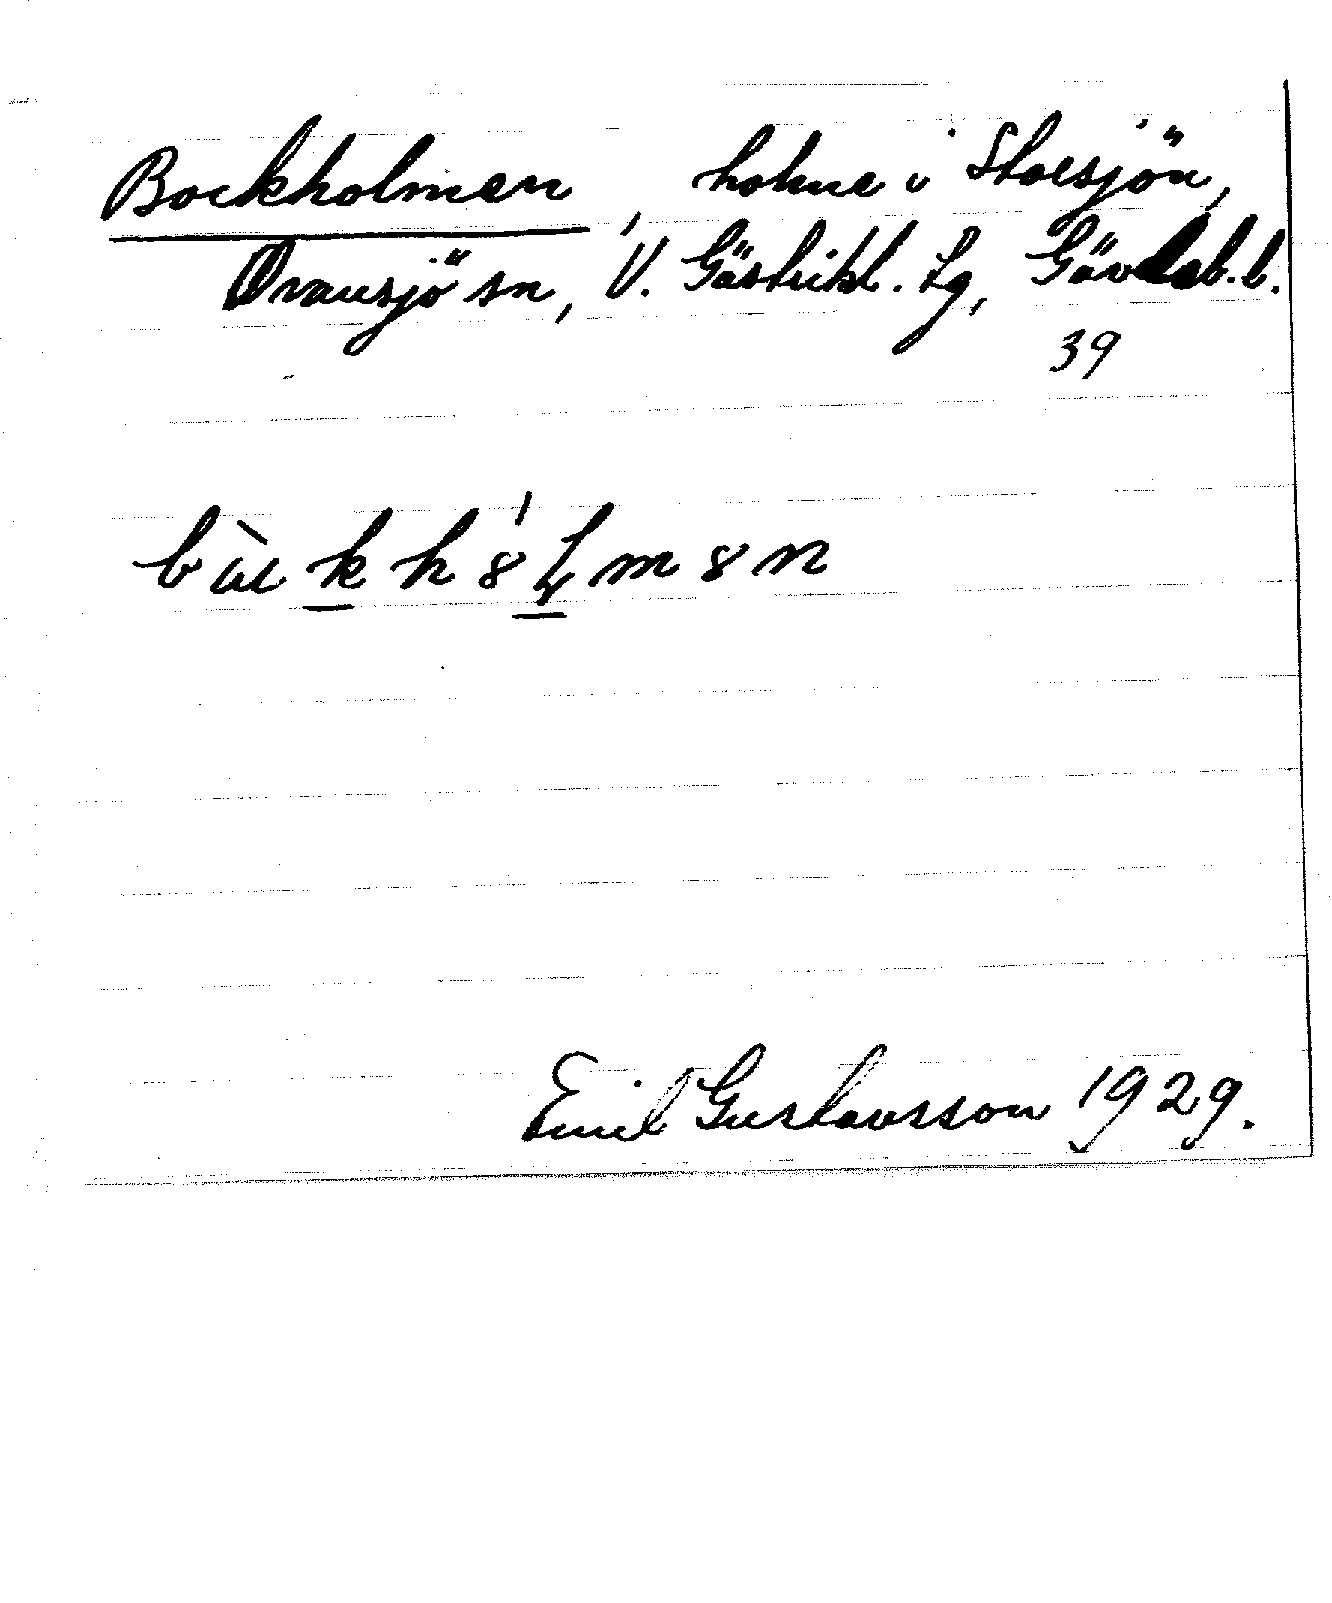 Bockholmen, holme i Storsjön,
Ovansjö sn, V. Gästrikl. tg, Gävleb. l.
39
bùckh8́lm8n
Emil Gustavsson 1929.